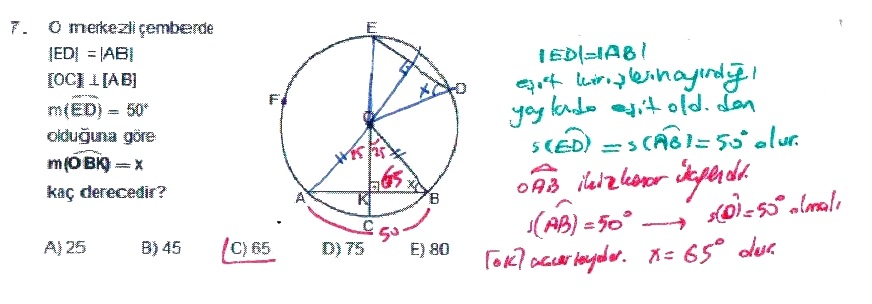 7. O merkezli çemberde
|ED| = |AB|
[OC] ⊥ [AB]
m(ED) = 50°
olduğuna göre
m(OBK) = x
kaç derecedir?
E
D
F
O
x
25 25
65
x
A
K
B
C
50
A) 25 B) 45 C) 65 D) 75 E) 80
|ED|=|AB|
eşit kirişlerin ayırdığı
yaylarda eşit old. dan
s(ED) = s(AB) = 50° olur.
OAB ikizkenar üçgendir.
s(AB) = 50° → s(O) = 50° olmalı
[OK] açıortaydır. x = 65° olur.